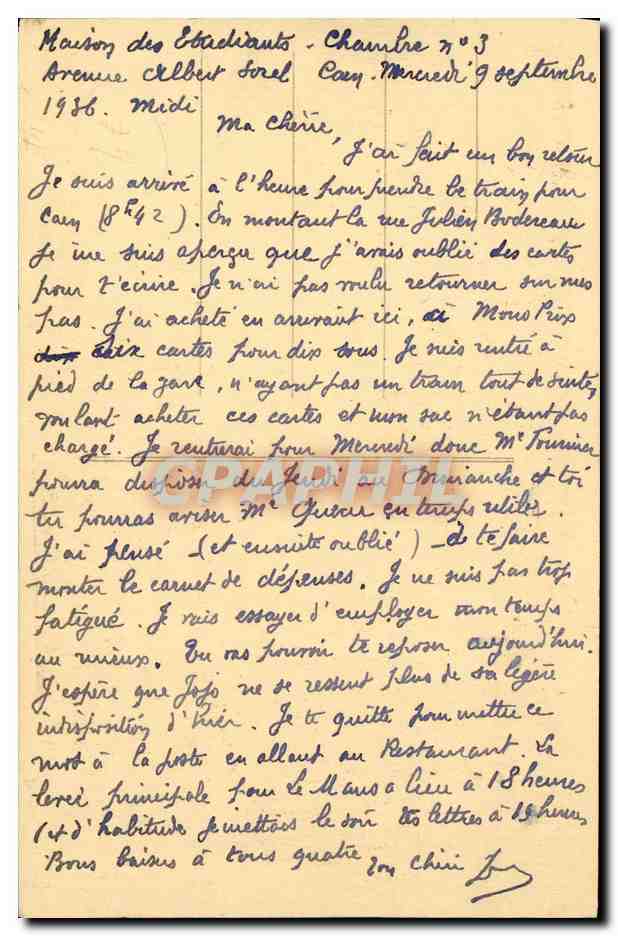 Maison des Etudiants - Chambre n° 3
Avenue Albert Sorel Caen. Mercredi 9 septembre
1936. Midi
Ma chérie,
J'ai fait un bon retour
Je suis arrivé à l'heure pour prendre le train pour
Caen (8h42). En montant la rue Julien Bodereau
je me suis aperçu que j'avais oublié des cartes
pour t'écrire. Je n'ai pas voulu retourner sur mes
pas. J'ai acheté en arrivant ici, à Mono Prix
dix cartes pour dix sous. Je suis rentré à
pied de la gare, n'ayant pas un tram tout de suite,
voulant acheter ces cartes et mon sac n'étant pas
chargé. Je rentrerai pour Mercredi donc Mr
pourra disposer du Jeudi au Dimanche et toi
tu pourras aviser Mr en temps utile.
J'ai pensé (et ensuite oublié) de te faire
monter le carnet de dépenses. Je ne suis pas trop
fatigué. Je vais essayer d'employer mon temps
au mieux. Tu vas pouvoir te reposer aujourd'hui.
J'espère que Jojo ne se ressent plus de sa légère
indisposition d'hier. Je te quitte pour mettre ce
mot à la poste en allant au Restaurant. La
levée principale pour Le Mans a lieu à 18 heures
d'habitude je mettais le soir tes lettres à 19 heures
Bons baisers à tous quatre Ton Chéri
CPAPHIL